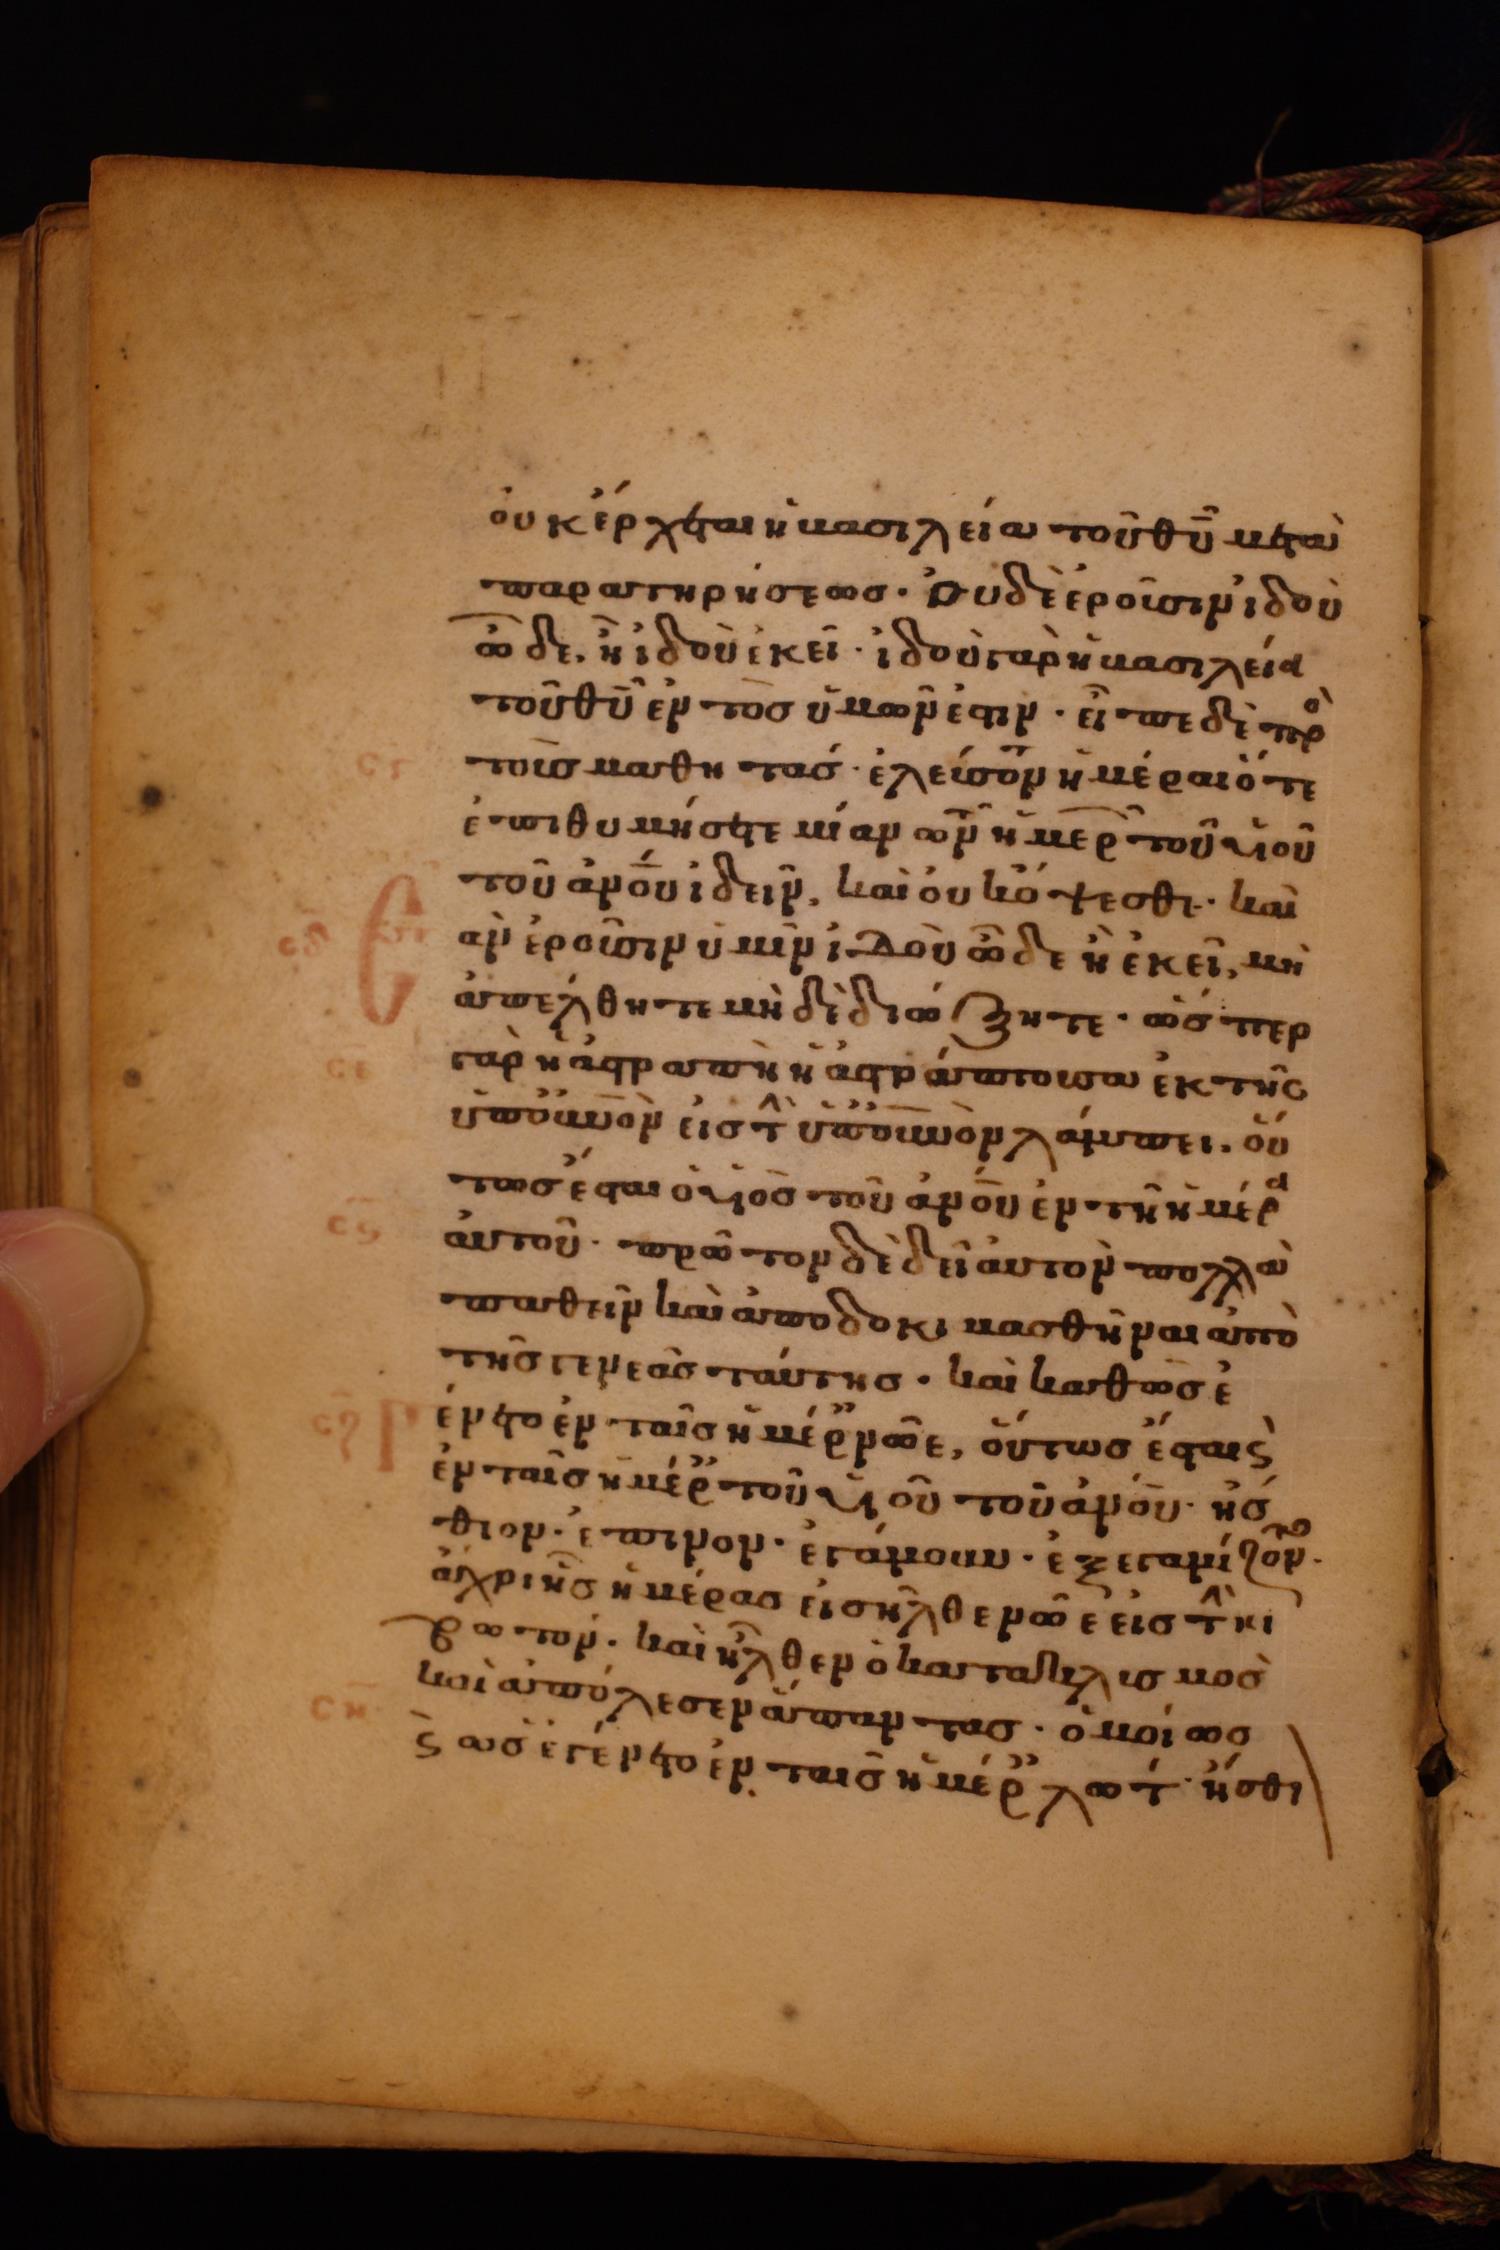 ὀυκ έρχεται ἡ βασιλεία τοῦ θυ̅ μετὰ
παρατηρήσεως· Ὀυδὲ ἐροῦσιν ἰδοὺ
ὧδε, ἢ ἰδοὺ ἐκεῖ· ἰδοὺ γὰρ ἡ βασιλεία
τοῦ θυ̅ ἐντὸς ὑμῶν ἐστιν· εἶπε δὲ πρὸ
σι τοὺς μαθητάσ· ἐλεύσοντ ἡμέραι ὅτε
ἐπιθυμήσετε μίαν τῶν ἡμερῶν τοῦ υἱοῦ
τοῦ ἀνο̅υ ἰδεῖν, καὶ ὀυκ ὄψεσθε· Καὶ
σδ ἀν ἐροῦσιν ὑμῖν ἰΔοὺ ὧδε ἢ ἐκεῖ, μὴ
ἀπέλθητε μὴ δὲ διώξητε· ὥσπερ
σε γὰρ ἡ ἀστραπὴ ἡ ἀστράπτουσα ἐκ τῆς
ὑπ ουνὸν εἰς τ ὑπ ουνὸν λάμπει· οὕ
τως ἔσται ὁ υἱὸσ τοῦ ἀνο̅υ ἐν τῇ ἡμέρα
σϛ ἀυτοῦ· πρῶτον δὲ δεῖ ἀυτὸν πολλὰ
παθεῖν καὶ ἀποδοκιμασθῆναι ἀπὸ
τῆσ γενεᾶσ ταύτησ· καὶ καθὼσ ἐ
σζ ἐνετο ἐν ταῖσ ἡμέρ νῶε, οὕτωσ ἔσται ϛ
ἐν ταῖσ ἡμέρ τοῦ υἱοῦ τοῦ ἀνο̅υ· ἤσ
θιον· ἔπινον· ἐγάμουν· ἐξεγαμίζοντο·
ἄχρι ἧσ ἡμέρασ εἰσῆλθε νῶε εἰς τ κι
βωτόν· καὶ ἦλθεν ὁ κατακλισμοσ
καὶ ἀπώλεσεν ἅπαντασ· ὁμοίωσ
σῃ ϛ ὡσ ἐγένετο ἐν ταῖσ ἡμέρ λώτ· ἤσθι